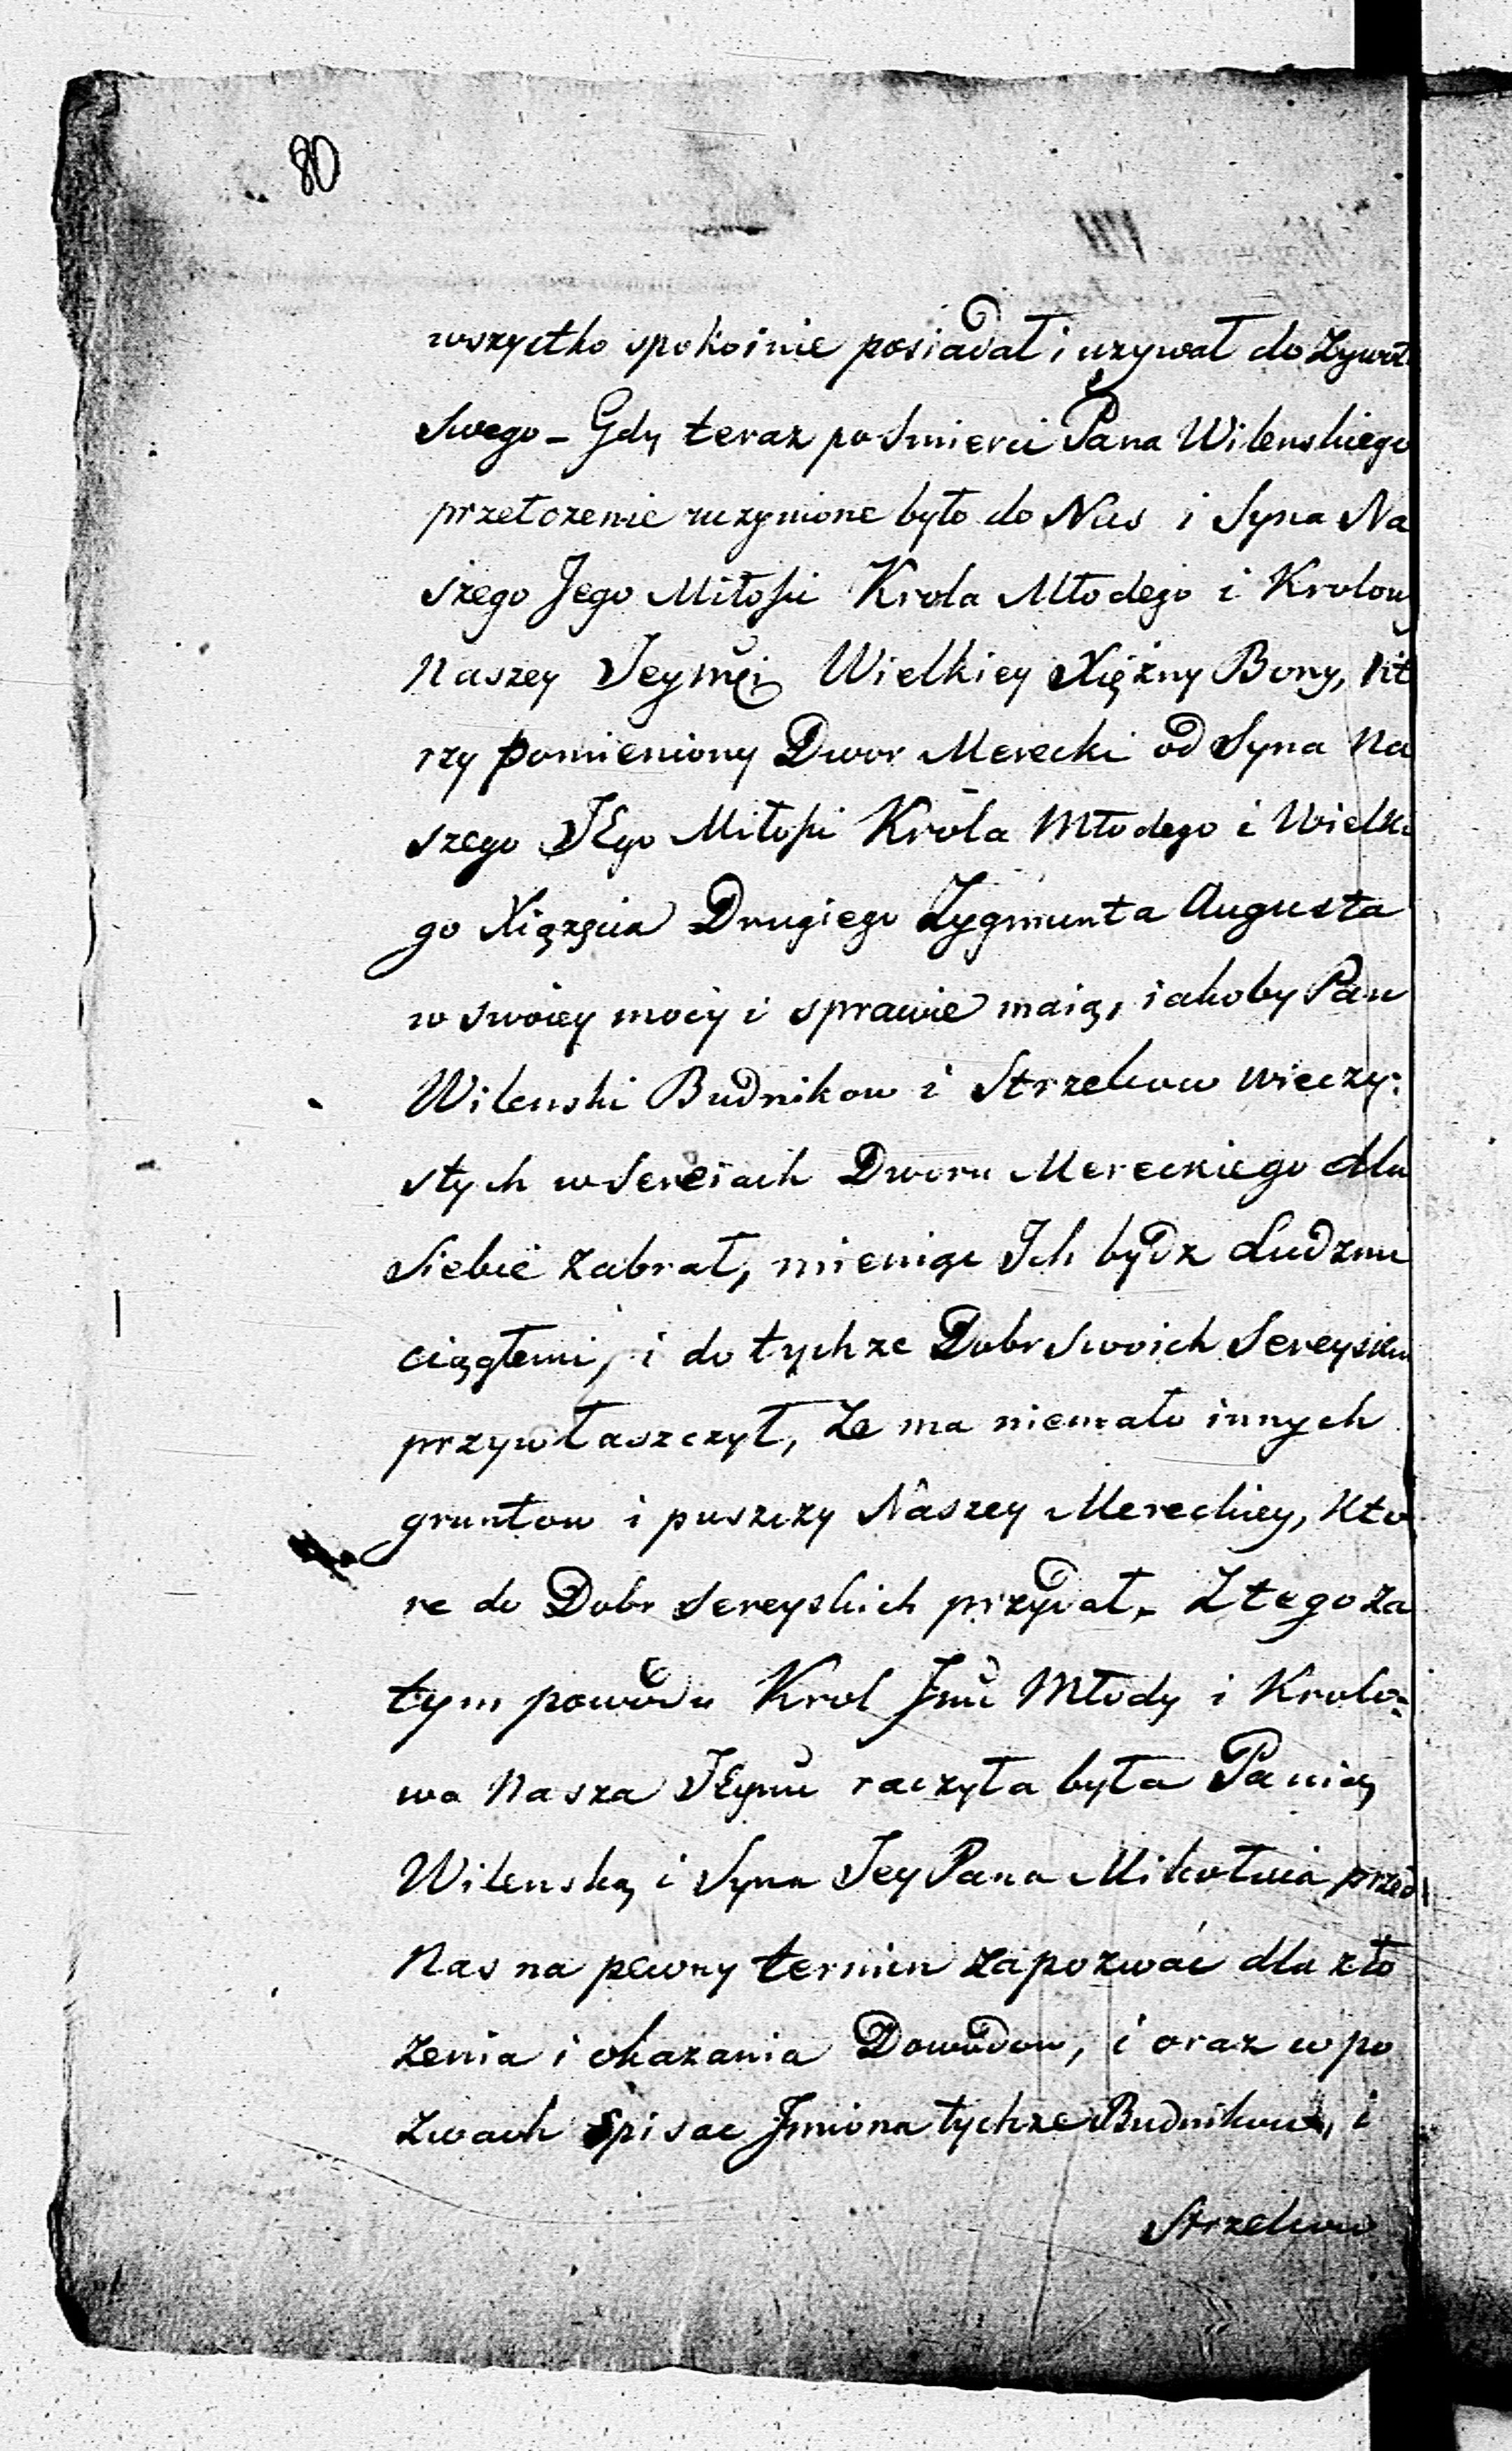 80
wszystko spokoinie posiadał i uzywał do Zywot
Swego - Gdy teraz po Smierci Pana Wilenskiego
przełozenie uczynione było do Nas i Syna Na
szego Jego Miłości Krola Młodego i Krolow
Naszey Jeymći Wielkiey Xiężny Bony, kt
rzy pomieniony Dwor Merecki od Syna Na
szego JEgo Miłości Króla Młodego i Wielki
go Xiązęcia Drugiego Zygmunta Augusta
w swoiey mocy i sprawie maią, iakoby Pan
Wilenski Budnikow i Strzelcow wieczy:
stych w Sereiach Dworu Mereckiego dla
Siebie zabrał, mieniąc Ich bydz Ludzmi
ciągłemi, i do tychze Dobr Swoich Sereyskich
przywłaszczył, Ze ma niemało innych
gruntow i puszczy Naszey Mereckiey, Kto
re do Dobr Sereyskich przydał, Z tego za
tym powodu Krol Jmć Młody i Krolo:
wa Nasza JEymć raczyła była Panią
Wilenską i Syna Jey Pana Mikołaia przed
Nas na pewny termin zapozwać dla zło
żenia i okazania Dowodow, i oraz w po
zwach Spisac Jmiona tychze Budnikow, i
Strzelcow